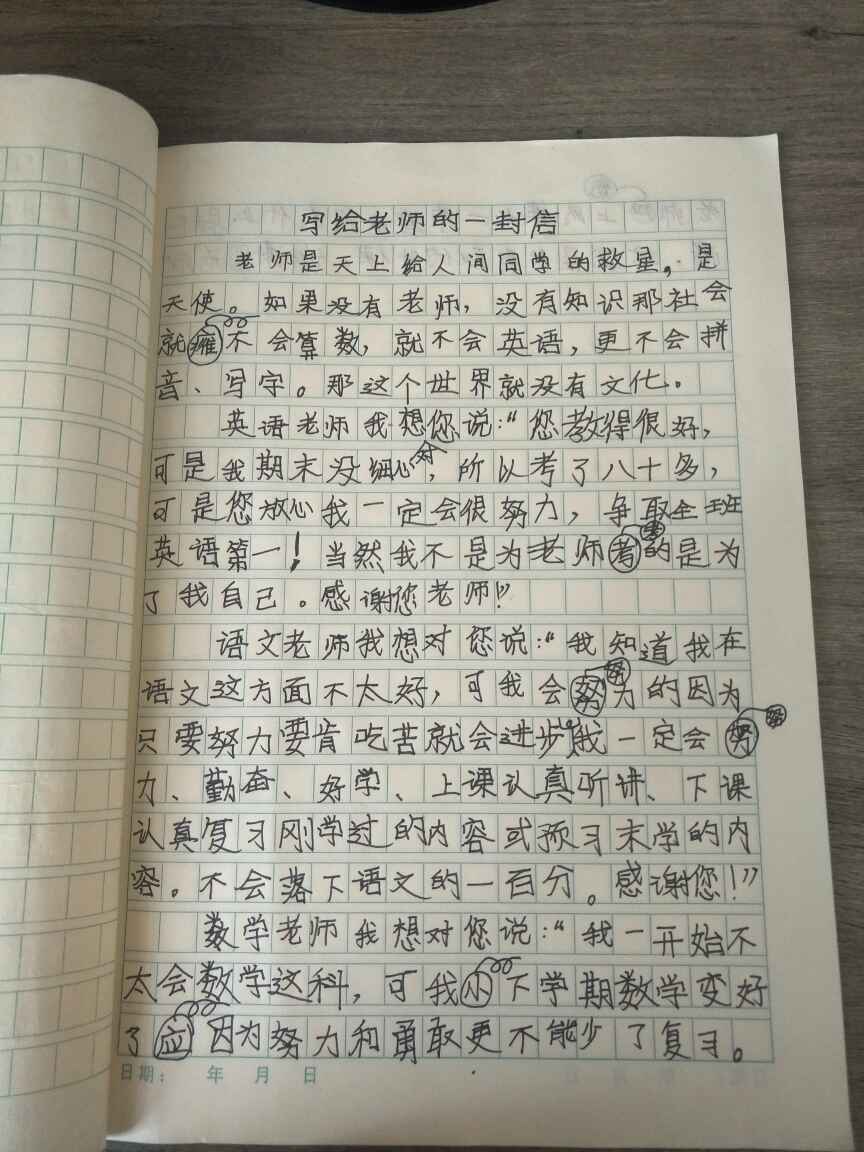 写给老师的一封信
老师是天上给人间同学的救星,是
天使。如果没有老师,没有知识那社会
就不会算数,就不会英语,更不会拼
音、写字。那这个世界就没有文化。
英语老师我想您说:“您教得很好,
可是我期末没细心对,所以考了八十多,
可是您放心我一定会很努力,争取全班
英语第一!当然我不是为老师考的是为
了我自己。感谢您老师!”
语文老师我想对您说:“我知道我在
语文这方面不太好,可我会努力的因为
只要努力要肯吃苦就会进步。我一定会努
力、勤奋、好学、上课认真听讲、下课
认真复习刚学过的内容或预习末学的内
容。不会落下语文的一百分。感谢您!”
数学老师我想对您说:“我一开始不
太会数学这科,可我下学期数学变好
了因为努力和勇敢更不能少了复习。
日期: 年 月 日